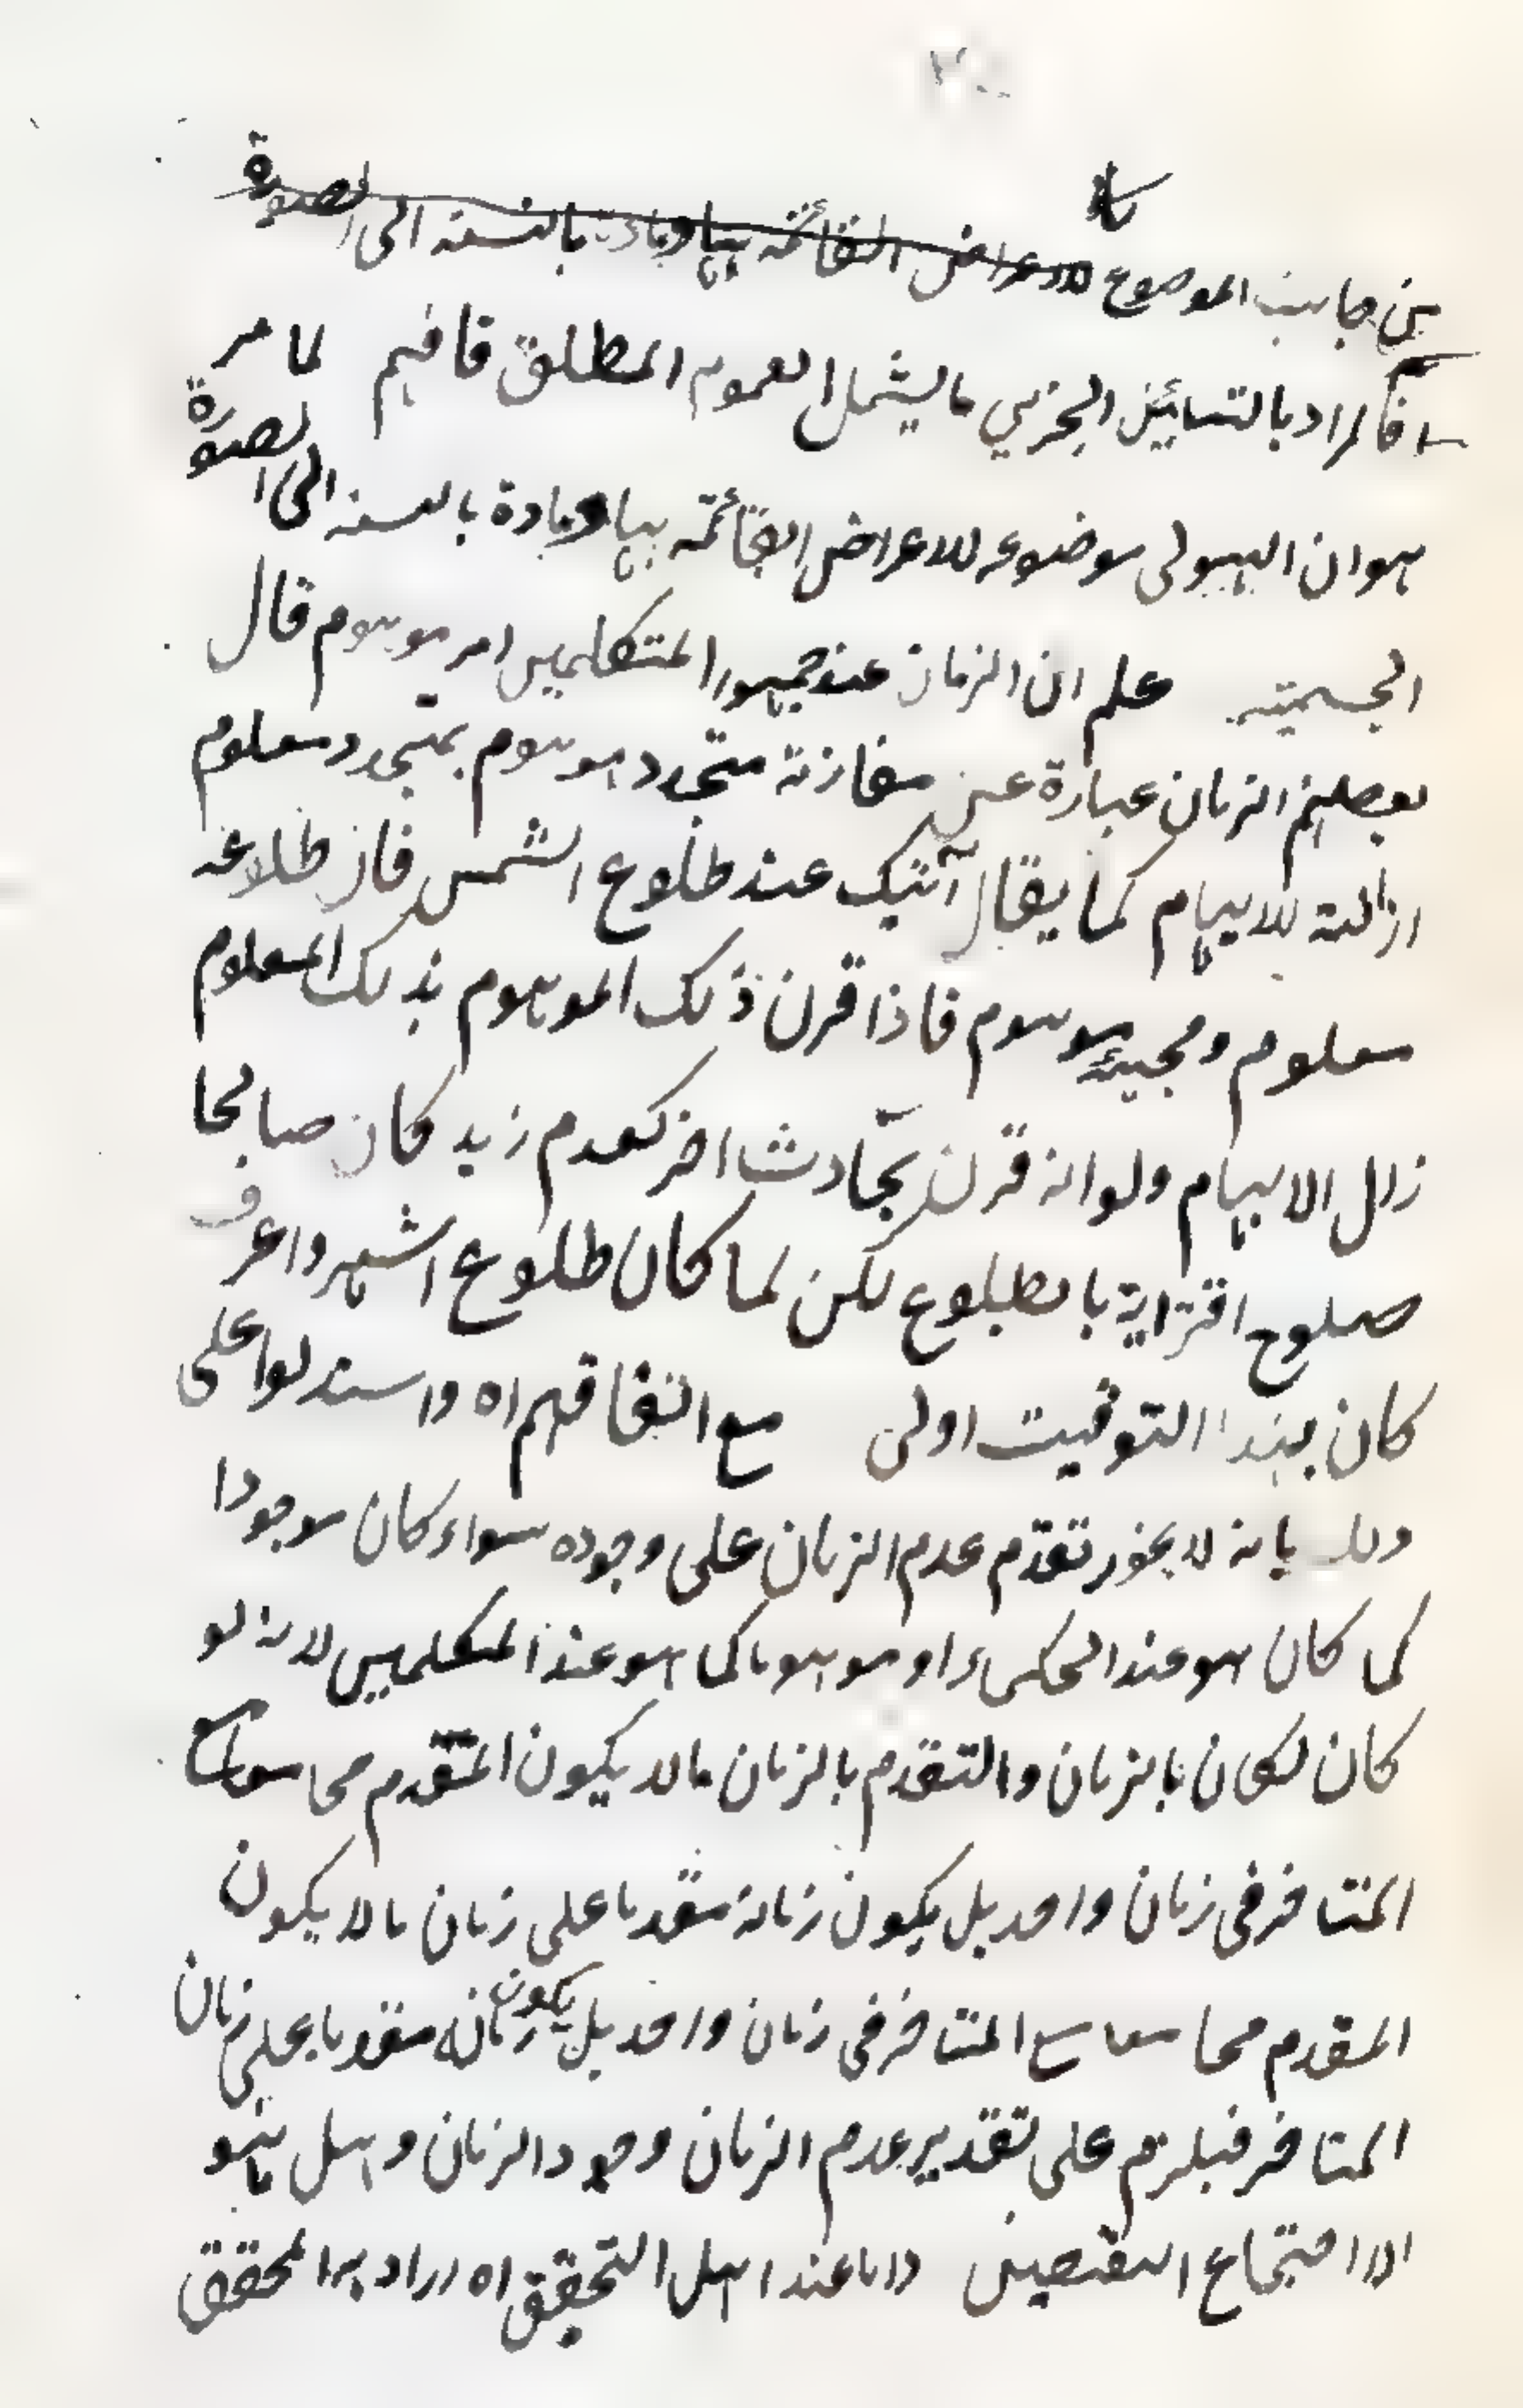 من جانب الموضوع للاعراض القائمة بها وبادة بالنسبة الى الصورة
فالمراد بالتباين الجزئي ما يشمل العموم المطلق فافهم لما مر
هو ان الهيولى موضوعه للاعراض القائمة بها ومادة بالنسبة الى الصورة
الجسمية علم ان الزمان عند جمهور المتكلمين امر موهوم قال
بعضهم الزمان عبارة عن مقارنة متجدد موهوم بمتجدد معلوم
ازالة للابهام كما يقال آتيك عند طلوع الشمس فان طلاعه
معلوم ومجيئه موهوم فاذا قرن ذلك الموهوم بذلك المعلوم
زال الابهام ولو انه قرن بحادث اخر كقدم زيد كان صالحا
صلوح اقترانه بالطلوع لكن لما كان طلوع اشهر واعرف
كان بهذا التوقيت اولى مع اتفاقهم اه واستدلوا على
ذلك بانه لا يجوز تقدم عدم الزمان على وجوده سواء كان موجودا
كما كان هو عند الحكماء او موهوما كما هو عند المتكلمين لانه لو
كان لكان بالزمان والتقدم بالزمان ما لا يكون المتقدم مجامعا مع
المتاخر فى زمان واحد بل يكون زمانه متقدما على زمان ما لا يكون
المتقدم مجامعا مع المتاخر فى زمان واحد بل يكون زمانه متقدما على زمان
المتاخر فيلزم على تقدير عدم الزمان وجود الزمان وهل هو
الا اجتماع النقيضين واما عند اهل التحقيق اه اراد به المحقق